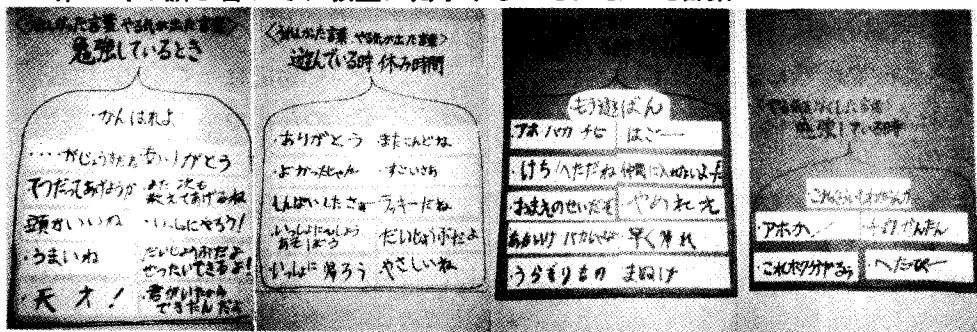 〈うれしかった言葉 やる気が出た言葉〉
勉強しているとき
がんばれよ
・…がじょうずだね
ありがとう
てつだってあげようか
また次も
教えてあげるね
頭がいいね
いっしょにやろう!
・うまいね
だいじょうぶだよ
ぜったいできるよ!
・天才!
・君がいたから
できたんだよ
〈うれしかった言葉 やる気が出た言葉〉
遊んでいる時 休み時間
・ありがとう
またこんどね
・よかったじゃん
・すごいさあ
しんぱいしたさぁ
ラッキーだね
・いっしょに
あそぼう
だいじょうぶだよ
・いっしょに帰ろう
やさしいね
もう遊ばん
・アホ バカ チビ
はごー
・けち/へただね
仲間に入れないよー
・おまえのせいだぞ
やめれえ
あっちいけ
早く帰れ
・うらぎりもの
まぬけ
勉強している時
これぐらいもわからんか
・アホか
・へたぴー